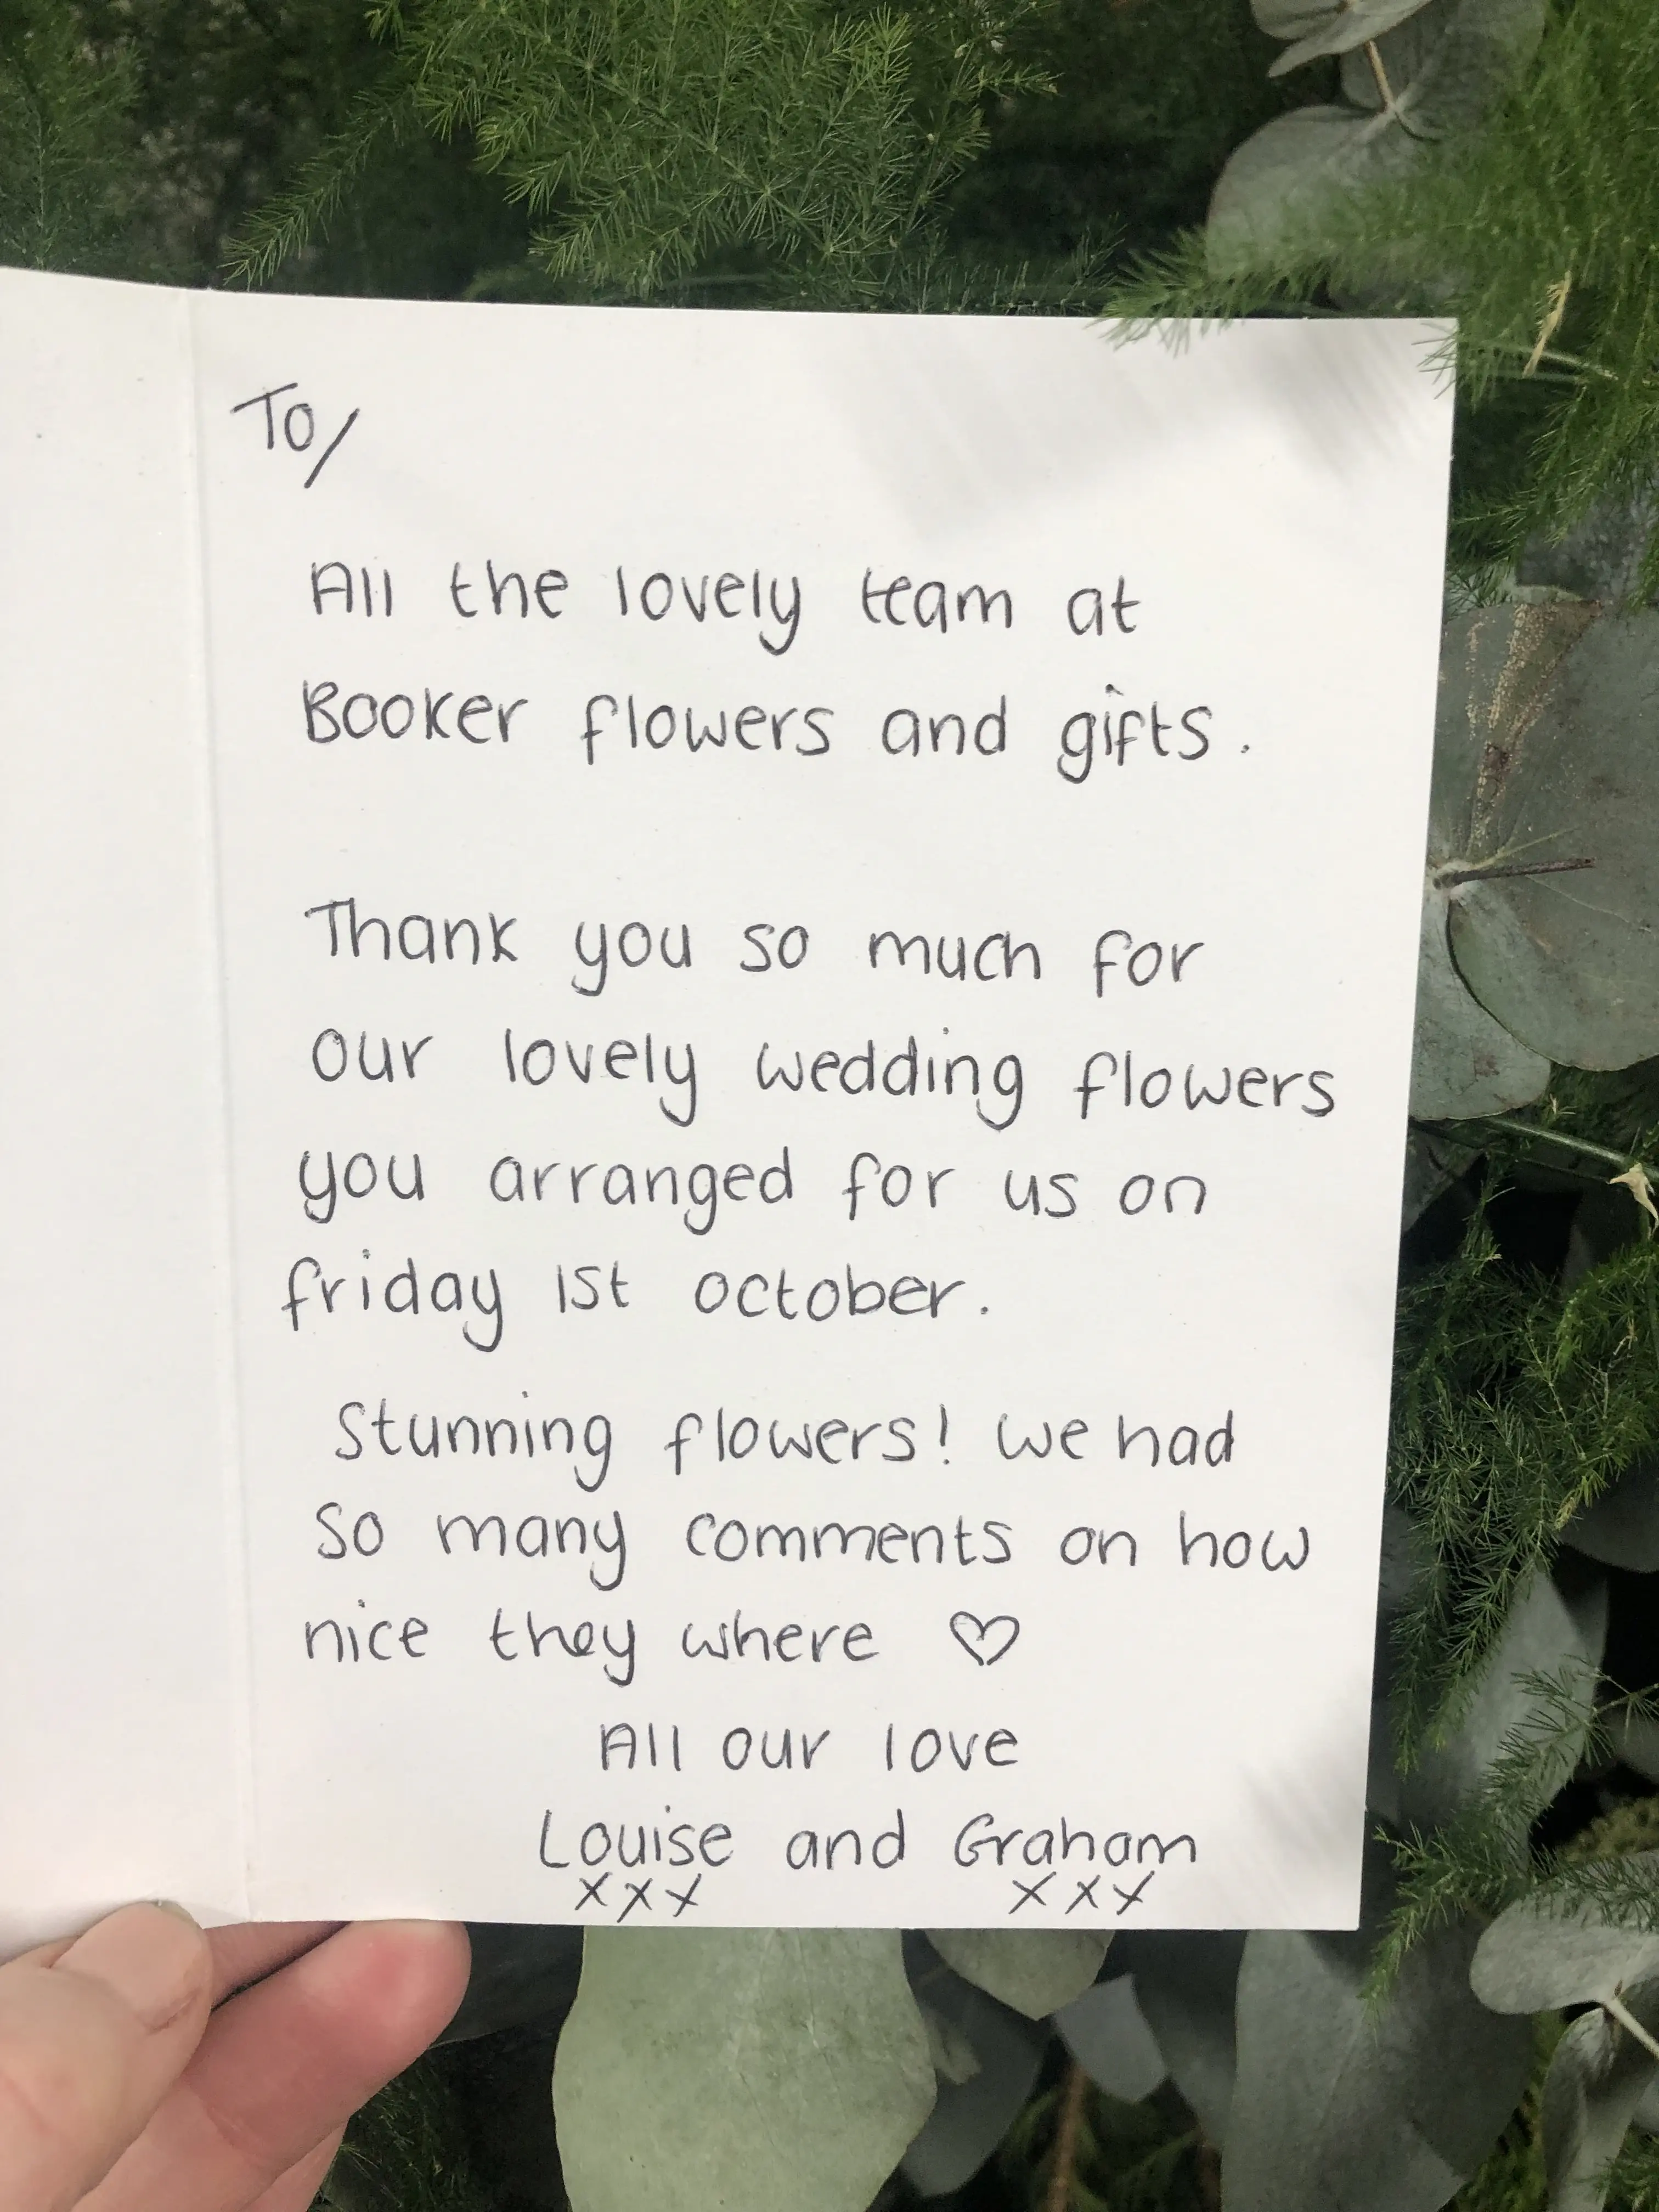 To/
All the lovely team at
Booker flowers and gifts.
Thank you so much for
our lovely wedding flowers
you arranged for us on
friday 1st october.
Stunning flowers! we had
so many comments on how
nice they where ♡
All our love
Louise and Graham
xxx xxx